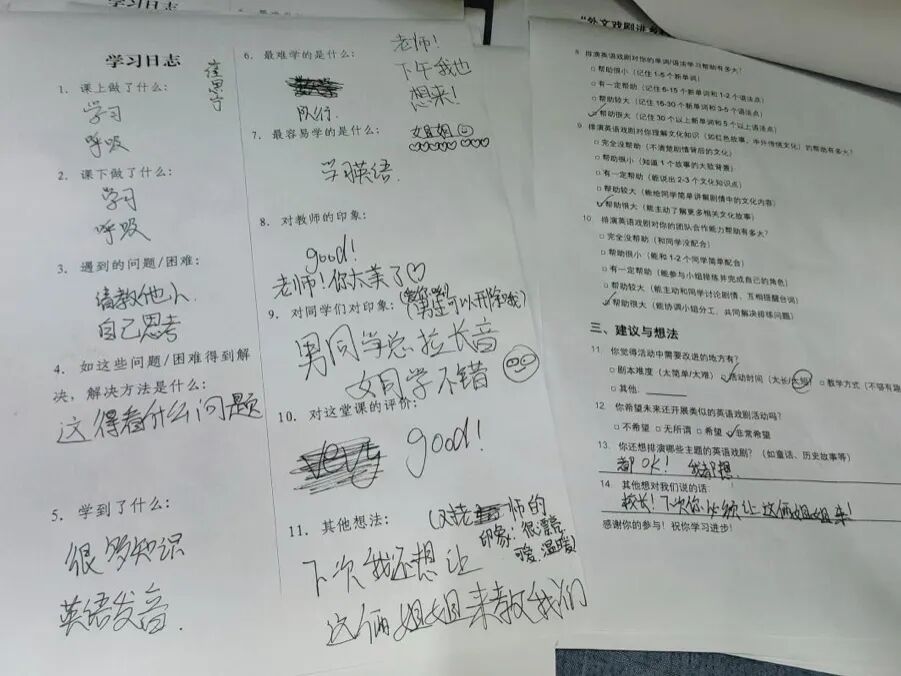 学习日志
学习日志
1. 课上做了什么：
学习
呼吸
2. 课下做了什么：
学习
呼吸
3. 遇到的问题/困难：
请教他人
自己思考
4. 如这些问题/困难得到解
决，解决方法是什么：
这得看什么问题
5. 学到了什么：
很多知识
英语发音.
6. 最难学的是什么：
7. 最容易学的是什么：
学习英语.
老师！
下午我也
想来！
姐姐
8. 对教师的印象：
good！
老师！你太美了♡
9. 对同学们对印象：
男同学总拉长音
女同学不错
10. 对这堂课的评价：
good！
11. 其他想法：
(对老师的
印象：很漂亮
可爱、温暖)
下次我还想让
这俩姐姐来教我们
8 排演英语戏剧对你的单词/语法学习帮助有多大？
□ 帮助很小（记住 1-5 个新单词）
□ 有一定帮助（记住 6-15 个新单词和 1-2 个语法点）
□ 帮助较大（记住 16-30 个新单词和 3-5 个语法点）
✓帮助很大（记住 30 个以上新单词和 5 个以上语法点）
9 排演英语戏剧对你理解文化知识（如红色故事、中外传统文化）的帮助有多大？
□ 完全没帮助（不清楚剧情背后的文化）
□ 帮助很小（知道 1 个故事的大致背景）
□ 有一定帮助（能说出 2-3 个文化知识点）
□ 帮助较大（能给同学简单讲解剧情中的文化内容）
✓帮助很大（能主动了解更多相关文化故事）
10 排演英语戏剧对你的团队合作能力帮助有多大？
□ 完全没帮助（和同学没配合）
□ 帮助很小（能和 1-2 个同学简单配合）
□ 有一定帮助（能参与小组排练并完成自己的角色）
□ 帮助较大（能主动和同学讨论剧情、互相提醒台词）
✓帮助很大（能协调小组分工，共同解决排练问题）
三、建议与想法
11 你觉得活动中需要改进的地方有？
□ 剧本难度（太简单/太难） ✓活动时间（太长/太短） □ 教学方式（不够有趣
□ 其他：
12 你希望未来还开展类似的英语戏剧活动吗？
□ 不希望 □ 无所谓 □ 希望 ✓非常希望
13. 你还想排演哪些主题的英语戏剧？（如童话、历史故事等）
都OK！ 我都想.
14. 其他想对我们说的话：
校长！下次你必须让这俩姐姐来！
感谢你的参与！祝你学习进步！